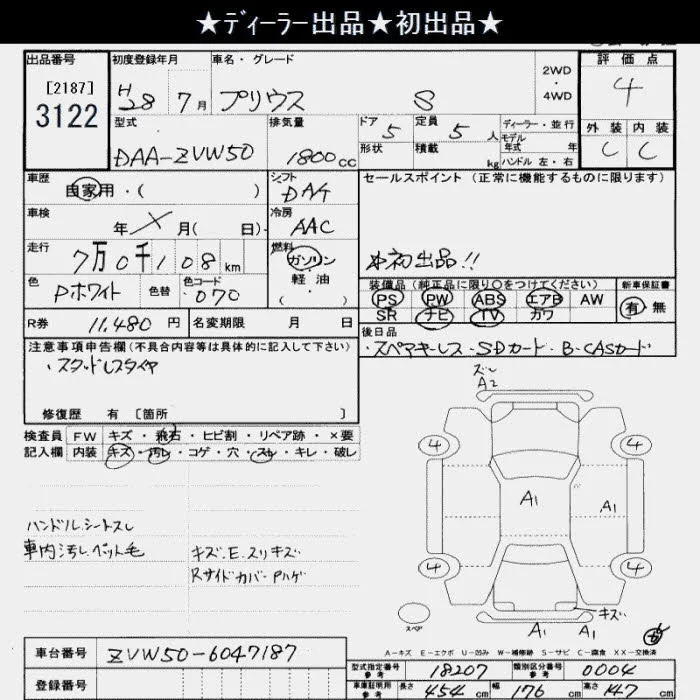 ★ディーラー出品★初出品★
出品番号 初度登録年月 車名・グレード 2WD・4WD 評価点
[2187]
3122
H28年7月 プリウス S 4
型式 排気量 ドア 5 定員 5人 ディーラー・並行
DAA-ZVW50 1800cc 形状 積載 kg モデル年式 年 ハンドル 左・右
外装 内装
C C
車歴 自家用・( ) シフト DAA セールスポイント (正常に機能するものに限ります)
車検 年 × 月( 日) 冷房 AAC
走行 7万0千108km 燃料 ガソリン・軽油・( )
*初出品!!
色 Pホワイト 色替 色コード 070
装備品(純正品に限り○をつけてください) 新車保証書
PS PW ABS エアB AW 有・無
SR ナビ TV カワ
R券 11,480円 名変期限 月 日
後日品
・スペアキーレス・SDカード・B-CASカード
注意事項申告欄(不具合内容等は具体的に記入して下さい)
・スタッドレスタイヤ
修復歴 有 [箇所 ]
検査員 FW キズ・飛石・ヒビ割・リペア跡・×要
記入欄 内装 キズ・汚レ・コゲ・穴・スレ・キレ・破レ
ハンドル.シートスレ
車内汚レ.ペット毛
キズ.E.スリキズ
Rサイドカバー.Pハゲ
ズレ
A2
4 4
A1 A1
4 4
キズ
スペア
A1 A1
A-キズ E-エクボ U-凹み W-補修跡 S-サビ C-腐食 XX-交換済
車台番号 ZVW50-6047187
登録番号
型式指定番号 参考 18207 類別区分番号 参考 0004
車庫証明用 参考 長さ 454cm 幅 176cm 高さ 147cm